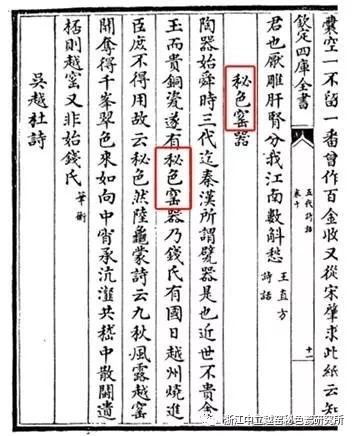 囊空一不留一番曾作百金收又從宋肇求此紙云知
欽定四庫全書
五代詩話
卷十
十一
君也厭雕肝腎分我江南數斛愁 王直方詩話
秘色窰器
陶器始舜時三代迄秦漢所謂甓器是也近世不貴金
王而貴銅瓷遂有秘色窰器乃錢氏有國日越州燒進
臣庶不得用故云秘色然陸龜蒙詩云九秋風露越窰
開奪得千峯翠色來如向中宵承沆瀣共嵇中散鬭遺
桮則越窰又非始錢氏 筆衡
吳越杜詩
浙江中立越窑秘色瓷研究所